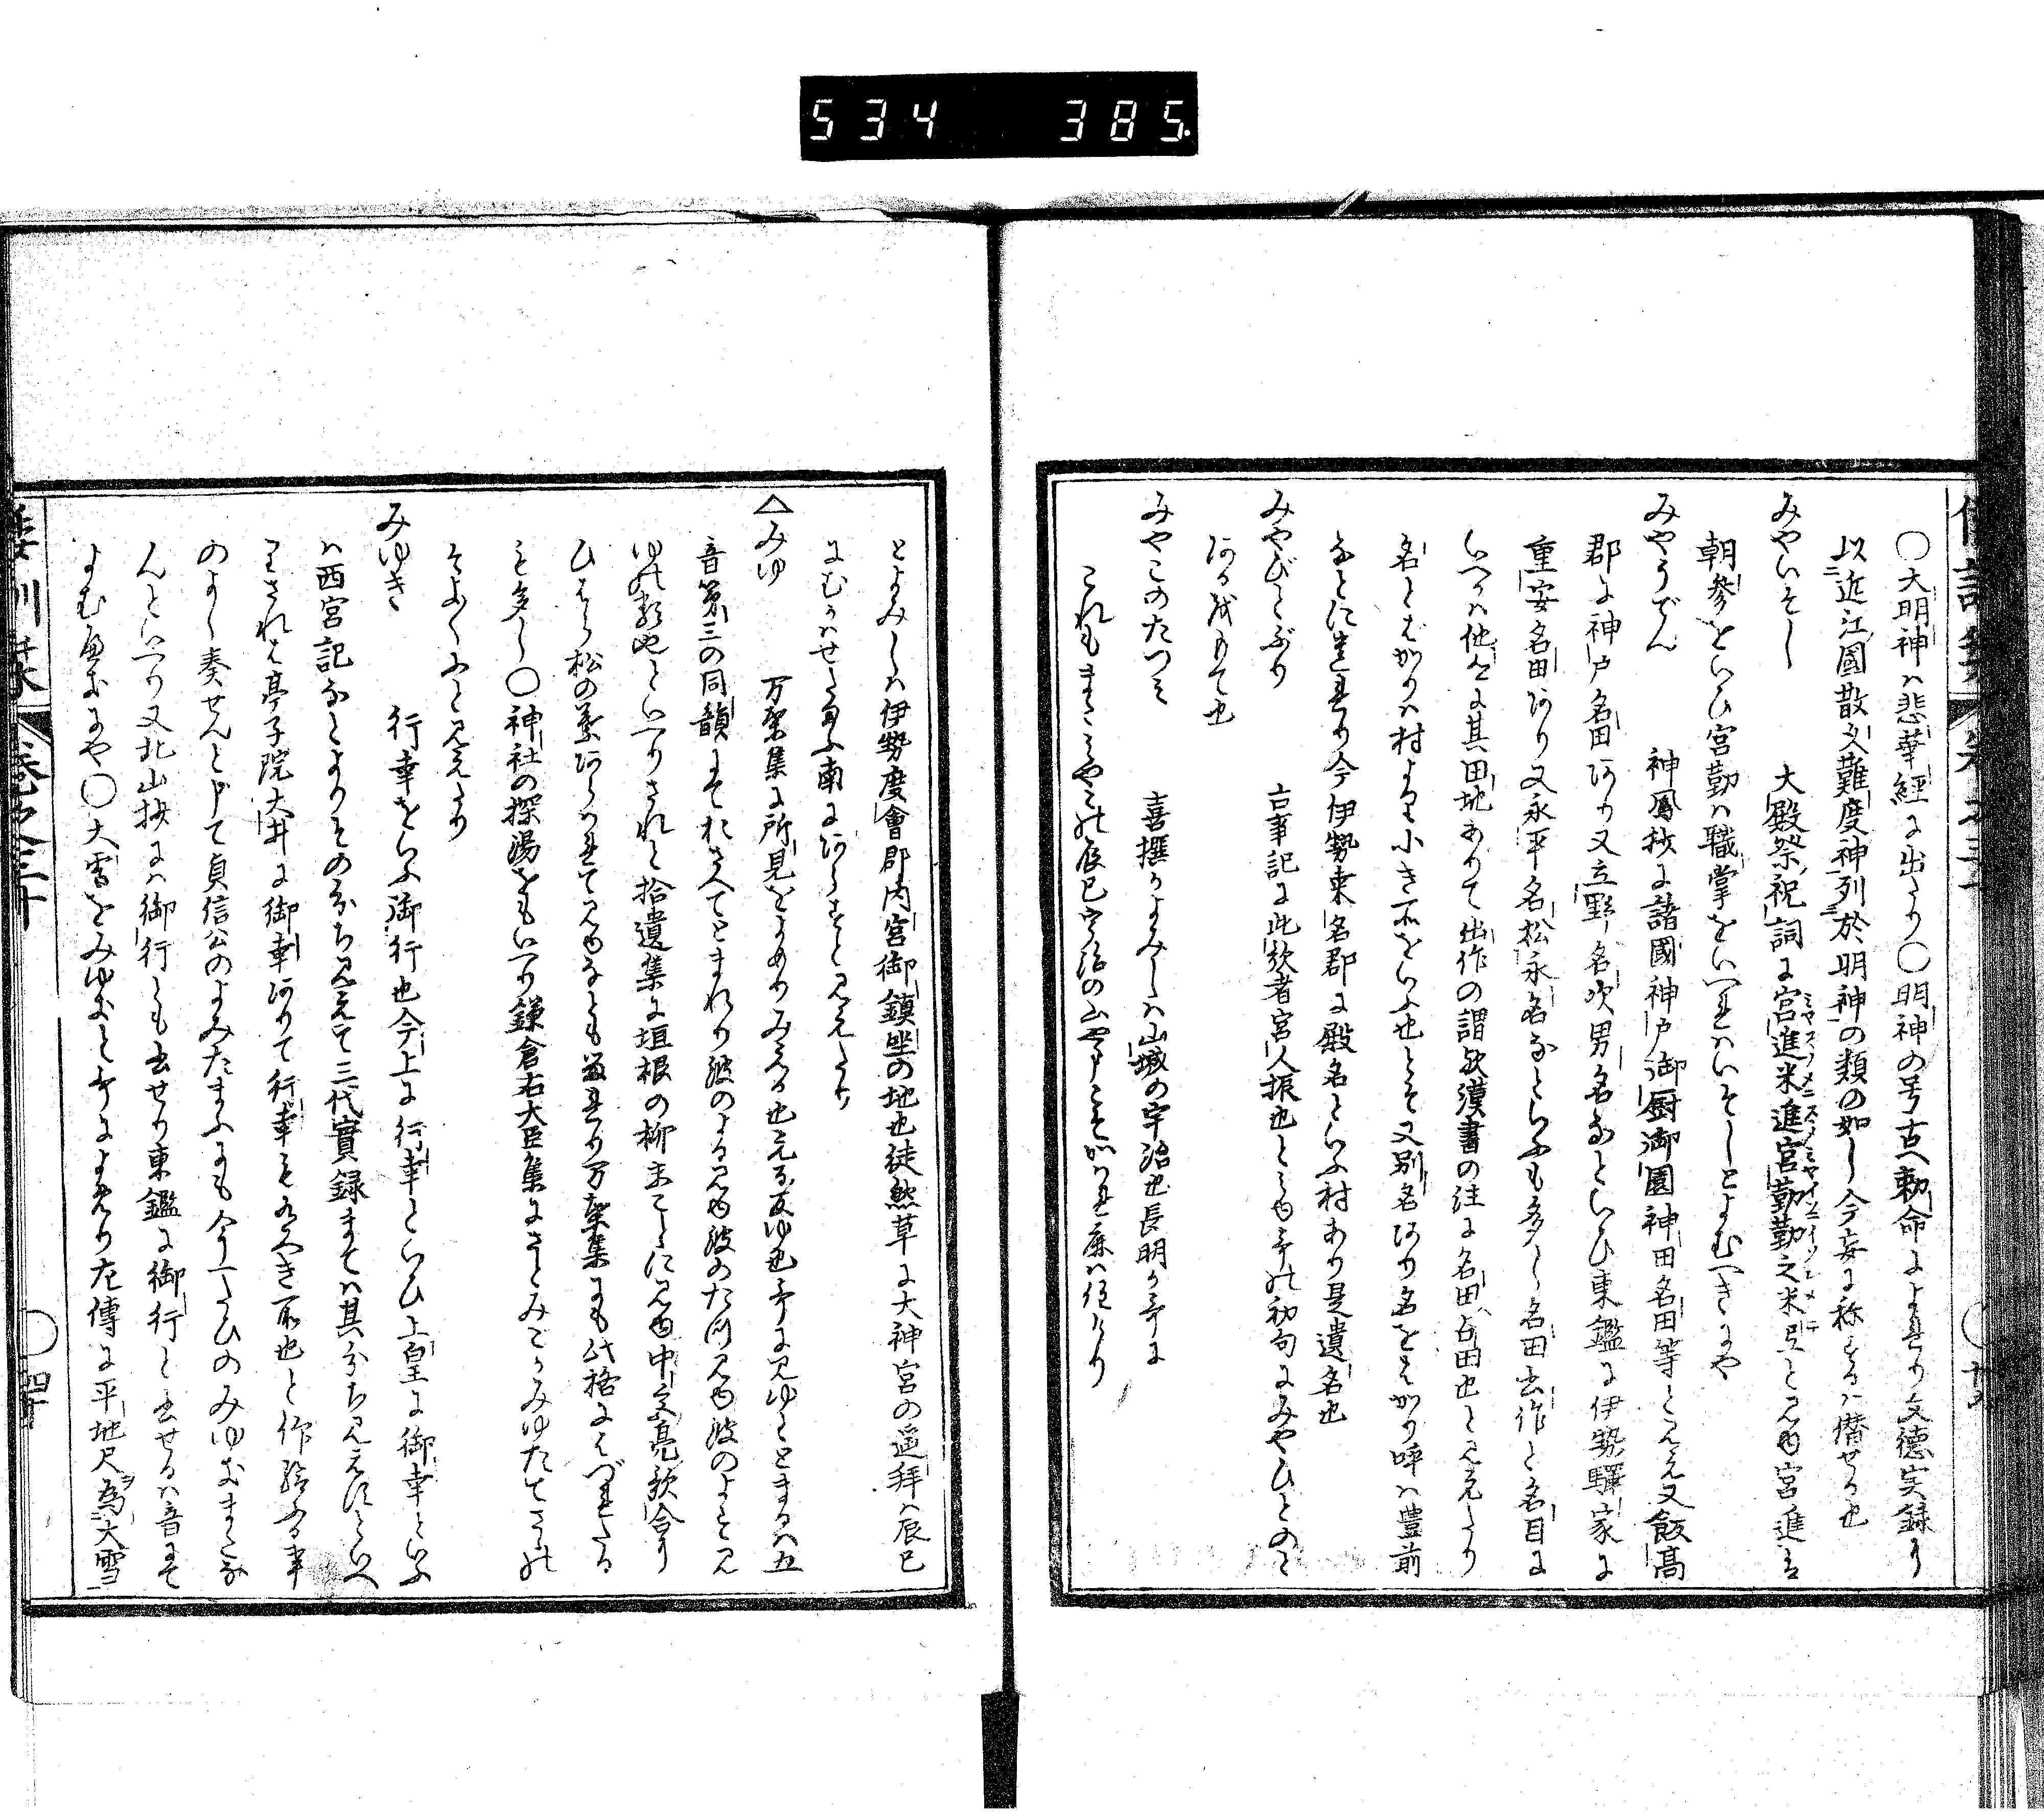 534 385
〇大明神ハ悲華經に出たり〇明神の号古へ勅命によれり文徳実録に
以近江國散久難度神列於明神の類の如し今妄に称するハ僭せる也
みやいそし 大殿祭祝詞に宮進米進宮勤勤之米弖と見ゆ宮進ハ
朝參をいひ宮勤ハ職掌をいへれハいそしとよむへきにや
みやうでん 神鳳抄に諸國神戸御厨御園神田名田等と見え又飯高
郡に神戸名田あり又立野名次男名なといひ東鑑に伊勢驛家に
重安名田あり又永平名松永名なといふも多し名田出作と名目に
いへるハ他々に其田地ありて出作の謂歟漢書の注に名田ハ占田也と見えたり
名とばかりハ村よりも小き所をいふ也とそ又別名あり名をはかり呼ハ豊前
なとに其あり今伊勢桒名郡に殿名といふ村あり是遺名也
みやびとぶり 古事記に此歌者宮人振也と見ゆ哥の初句にみやひとのと
あるをもて也
みやこのたつみ 喜撰かよみしハ山城の宇治也長明か哥に
これもまたみやこの辰巳宇治の山やまこそかはれ庵ハ住けり
とよみしハ伊勢度會郡内宮御鎮坐の地也徒然草に大神宮の遥拜ハ辰巳
にむかハせたまふ南にあらすと見えたり
△みゆ 万葉集に所見をよめりみえる也える反ゆ也哥に見ゆととまるハ五
音第三の同韻にておさへてとまれり波のよる見ゆ波のたつ見ゆ波のよせ見
ゆの類也といへりされと拾遺集に垣根の柳まてに見ゆ中文亮歌合に
ひはら松の葉あらハれて見ゆなとも あり万葉集にも此格にはづれたる
も多し〇神社の探湯をもいへり鎌倉右大臣集にさとみこかみゆたてさゝの
そよ〳〵にと見えたり
みゆき 行幸をいふ御行也今上に行幸といひ上皇に御幸といふ
ハ西宮記なとよりその分ち見えて三代實録まてハ其分ち見えすといへ
りされは亭子院大井に御幸ありて行幸もあるへき所也と作給ふ事
のよし奏せんと申て貞信公のよみたまふにも今一たひのみゆきまたな
んといへり又北山抄にハ御行とも出せり東鑑に御行と出せるハ音にて
よむへきにや〇大雪をみゆきと哥によめり左傳に平地尺為大雪
倭訓栞 卷之三十 〇 四十